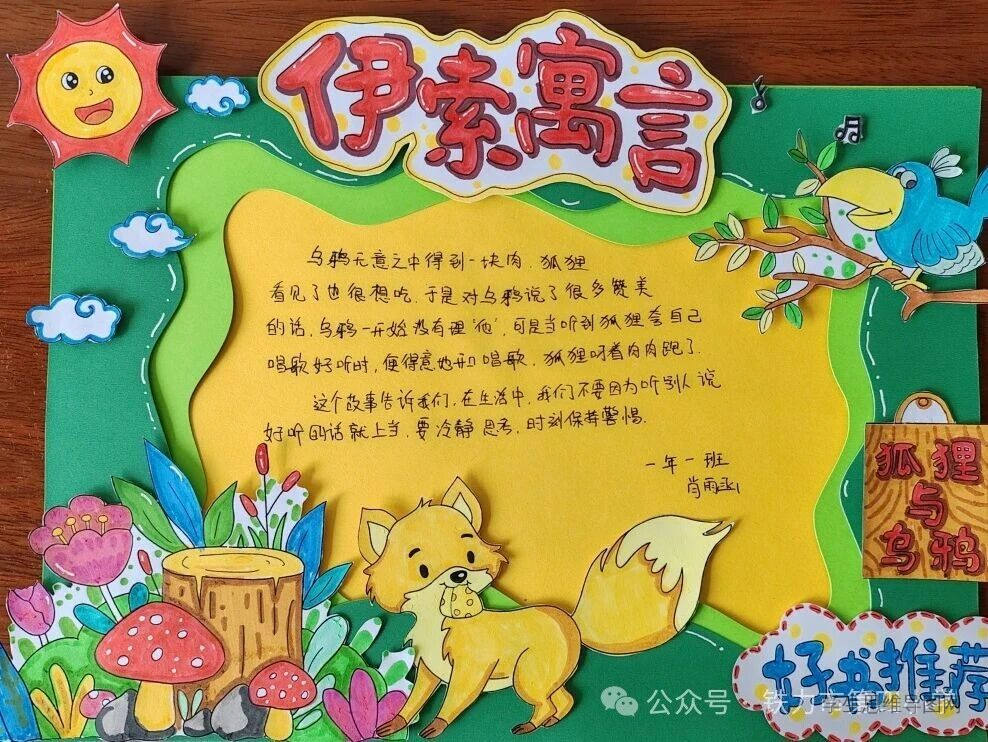 伊索寓言
乌鸦无意之中得到一块肉，狐狸
看见了也很想吃，于是对乌鸦说了很多赞美
的话，乌鸦一开始没有理‘他’，可是当听到狐狸夸自己
唱歌好听时，便得意地开口唱歌，狐狸叼着肉肉跑了.
这个故事告诉我们，在生活中，我们不要因为听别人说
好听的话就上当，要冷静思考，时刻保持警惕.
一年一班
肖雨
狐狸
与
乌鸦
好书推荐
公众号
思维导图网